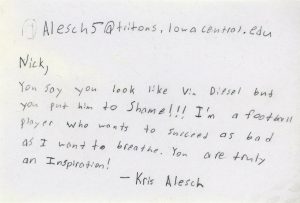 Alesch5@tritons.iowacentral.edu
Nick,
You say you look like Vin Diesel but
you put him to Shame!!! I'm a football
player who wants to succeed as bad
as I want to breathe. You are truly
an Inspiration!
- Kris Alesch